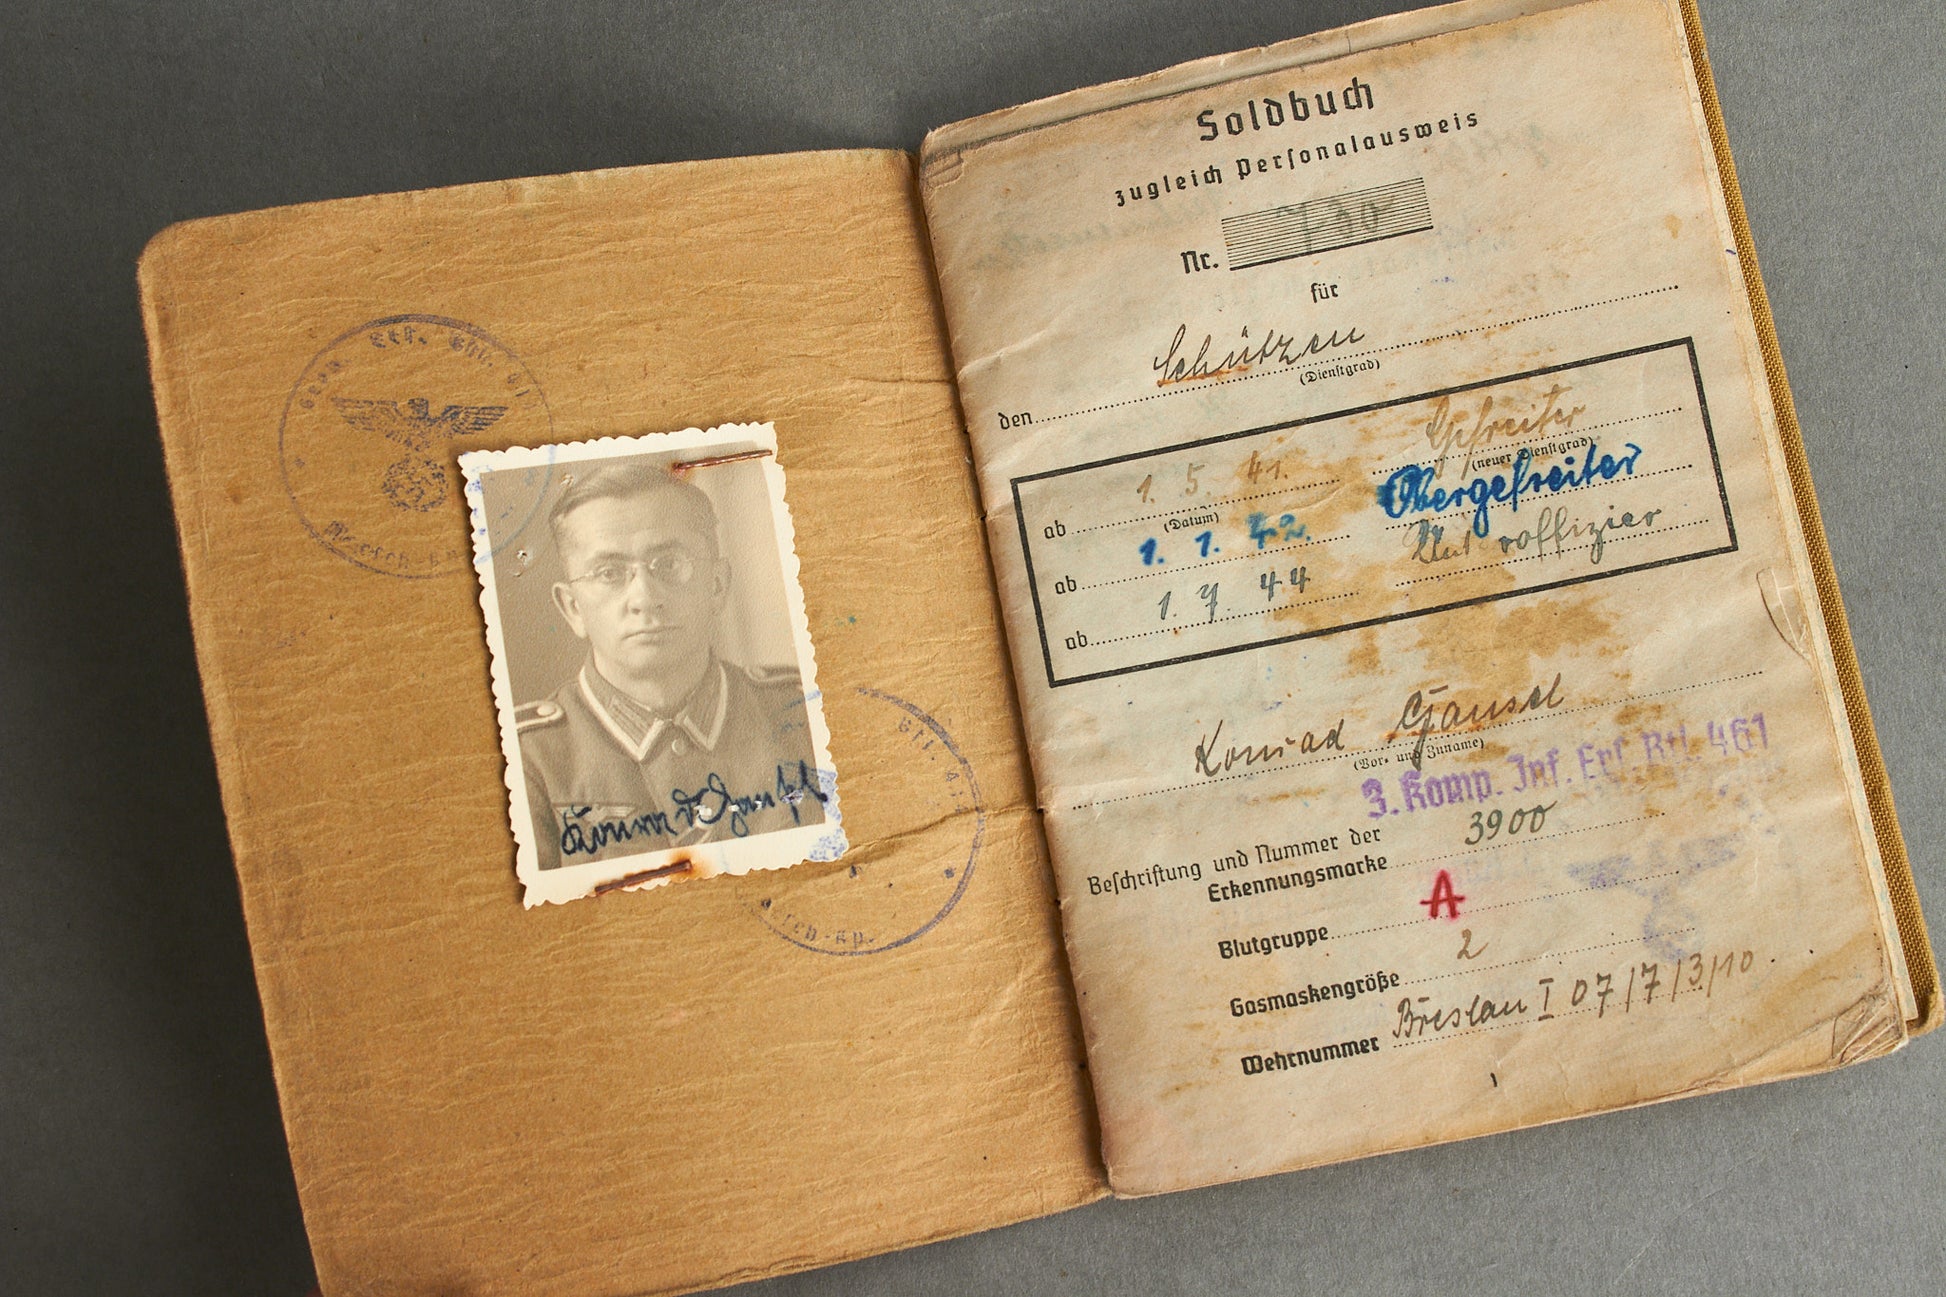 Konrad Gansel
Soldbuch
zugleich Personalausweis
Nr. 730
für
den Schützen
(Dienstgrad)
ab 1. 5. 41. Gefreiter
(Datum) (neuer Dienstgrad)
ab 1. 1. 42. Obergefreiter
ab 1. 7. 44 Unteroffizier
Konrad Gansel
(Vor- und Zuname)
3. Komp. Inf. Ers. Btl. 461
Beschriftung und Nummer der
Erkennungsmarke 3900
Blutgruppe A
Gasmaskengröße 2
Wehrnummer Breslau I 07/7/3/10.